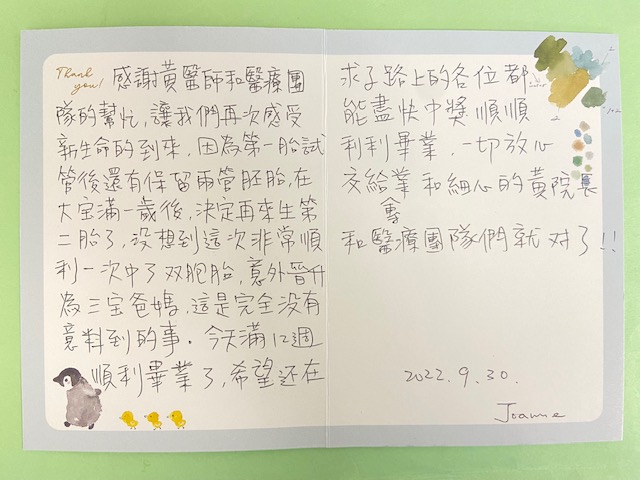 Thank you!
感謝黃醫師和醫療團
隊的幫忙，讓我們再次感受
新生命的到來，因為第一胎試
管後還有保留兩管胚胎，在
大宝滿一歲後，決定再來生第
二胎了，没想到這次非常順
利一次中了双胞胎，意外晉升
為三宝爸媽，這是完全没有
意料到的事。今天滿12週
順利畢業了，希望还在
求子路上的各位都
能盡快中獎順順
利利畢業，一切放心
交給業和細心的黃院長
會
和醫療團隊們就对了!!
2022.9.30.
Joanne